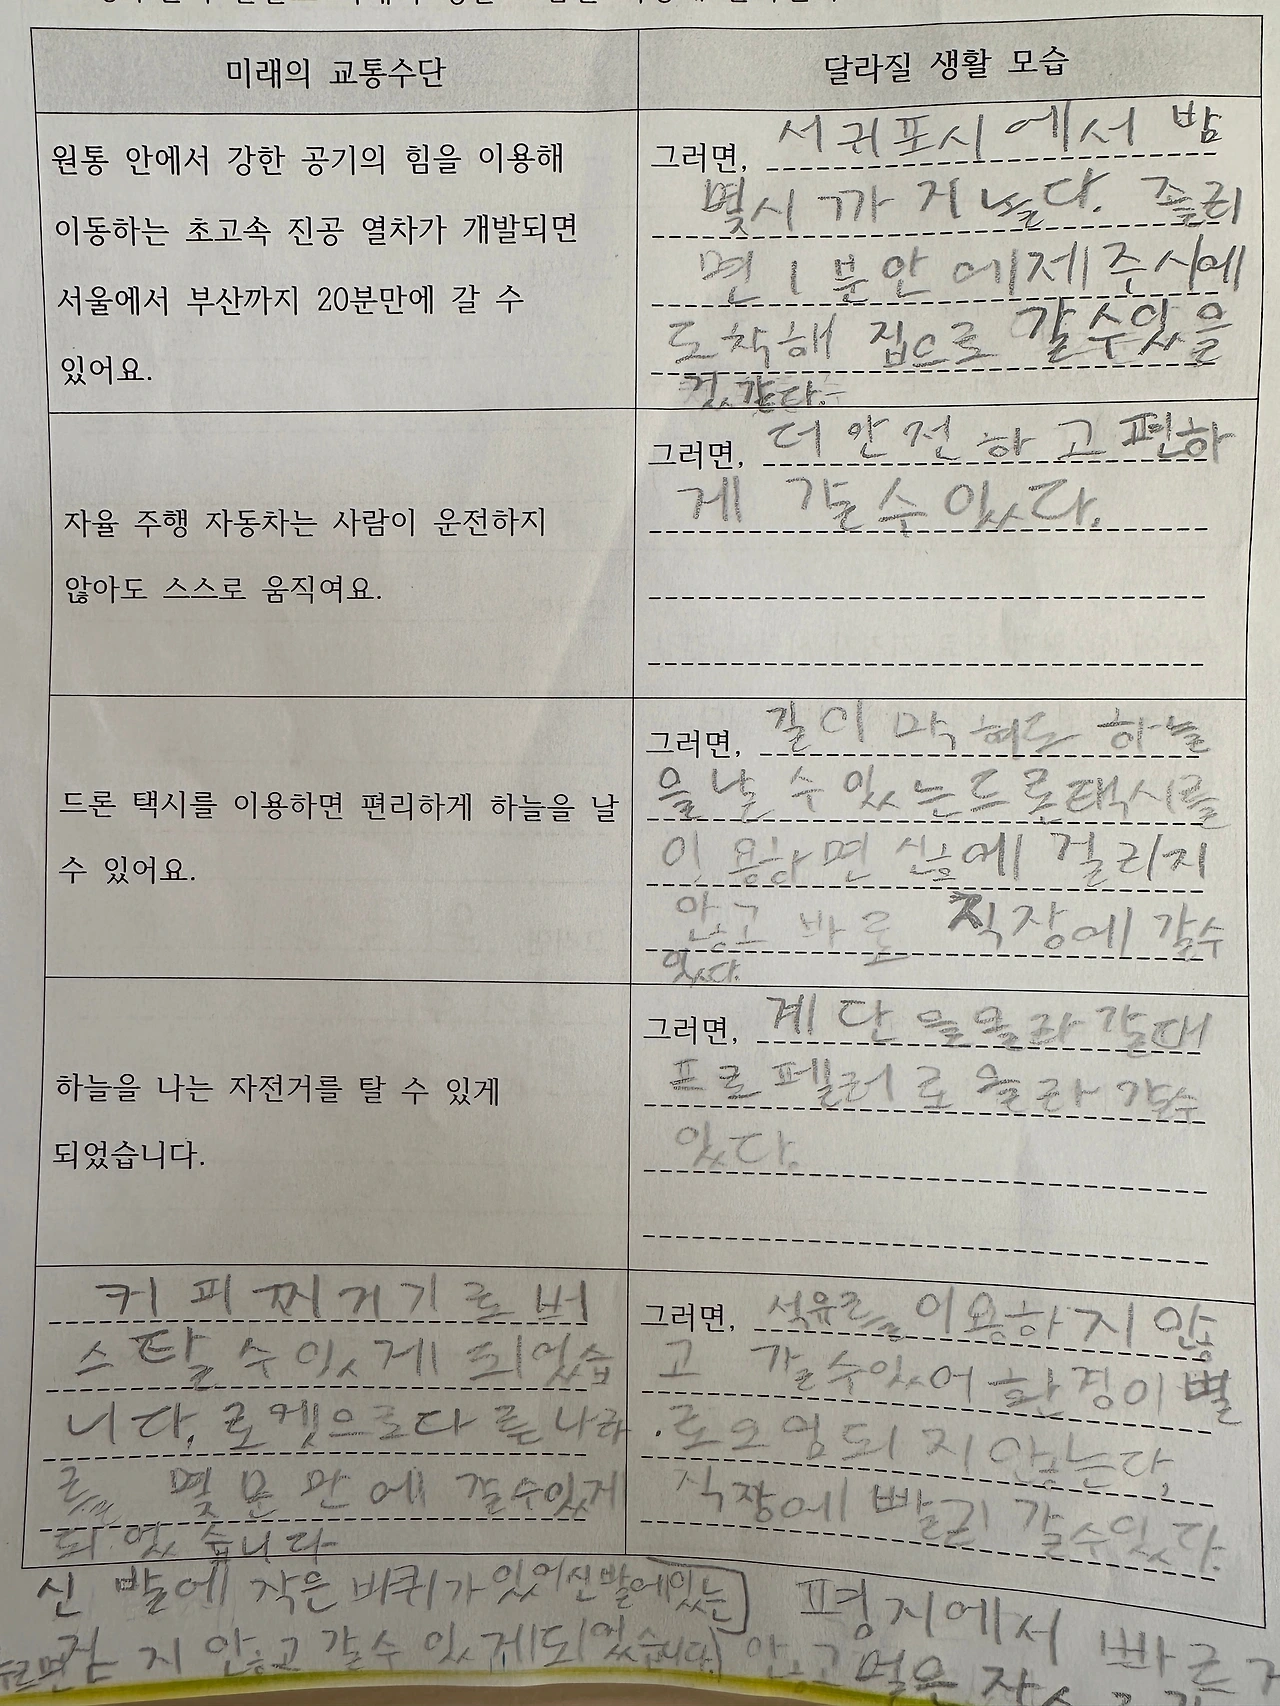 미래의 교통수단
달라질 생활 모습
원통 안에서 강한 공기의 힘을 이용해
이동하는 초고속 진공 열차가 개발되면
서울에서 부산까지 20분만에 갈 수
있어요.
그러면, 서귀포시에서 밤
몇시까지 논다. 졸리
면 1분안에 제주시에
도착해 집으로 갈수있을
것 같다.
자율 주행 자동차는 사람이 운전하지
않아도 스스로 움직여요.
그러면, 더 안전하고 편하
게 갈 수 있다.
드론 택시를 이용하면 편리하게 하늘을 날
수 있어요.
그러면, 길이 막혀도 하늘
을 날 수 있는 드론택시를
이용하면 신호에 걸리지
않고 바로 직장에 갈수
있다.
하늘을 나는 자전거를 탈 수 있게
되었습니다.
그러면, 계단을 올라갈때
프로펠러로 올라 갈수
있다.
커피찌거기로 버
스 탈 수 있게 되었습
니다. 로켓으로 다른 나라
를 몇 분 만에 갈수있게
되었습니다
그러면, 석유를 이용하지 않
고 갈수있어 환경이 별
로 오염되지 않는다,
직장에 빨리 갈수있다.
신발에 작은 바퀴가 있어 신발에 있는
지 않고 갈수 있게되었습니다
평지에서 빠르
않고